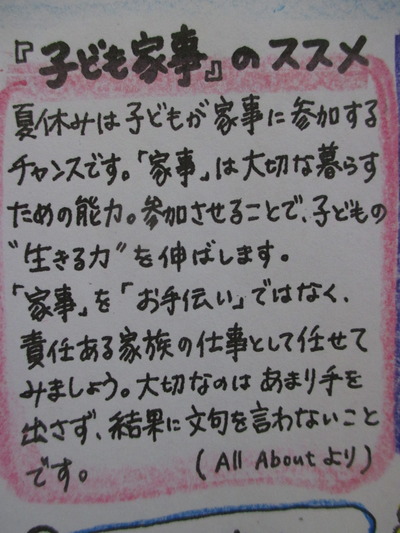 『子ども家事』のススメ
夏休みは子どもが家事に参加する
チャンスです。「家事」は大切な暮らす
ための能力。参加させることで、子どもの
"生きる力"を伸ばします。
「家事」を「お手伝い」ではなく、
責任ある家族の仕事として任せて
みましょう。大切なのはあまり手を
出さず、結果に文句を言わないこと
です。 (All Aboutより)